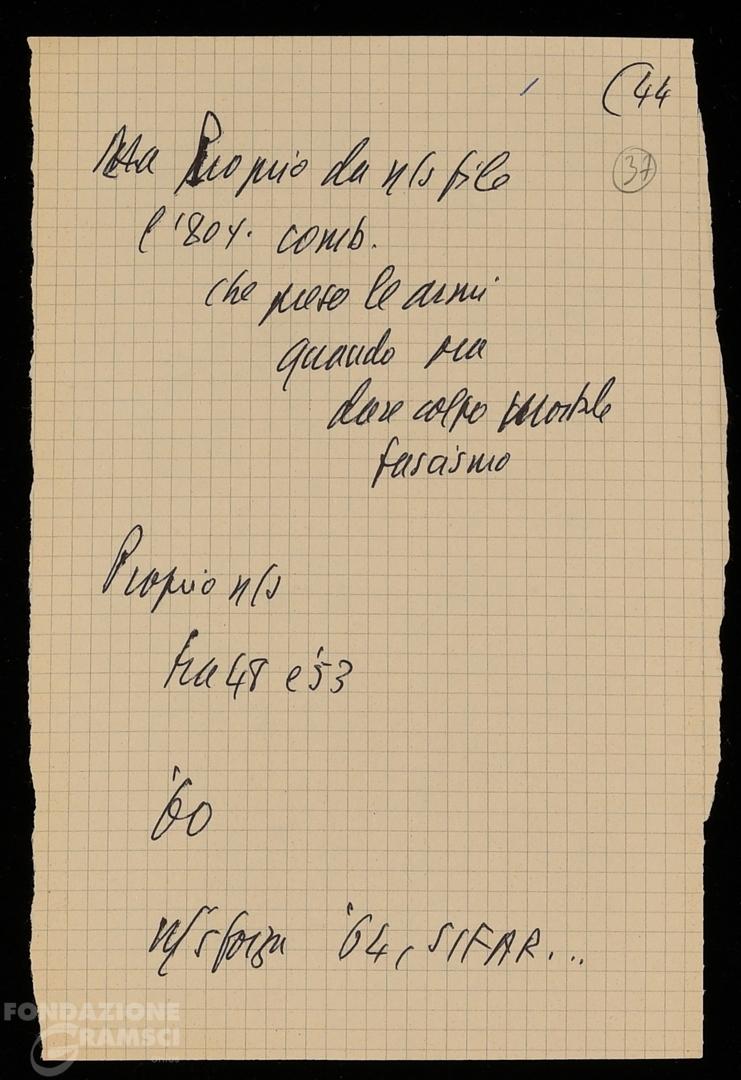 (44
37
Ma Proprio da n/s file
l'80%. comb.
che prese le armi
quando era
dare colpo mortale
fascismo
Proprio n/s
tra 48 e '53
'60
n/s forza '64, SIFAR...
FONDAZIONE
GRAMSCI
onlus